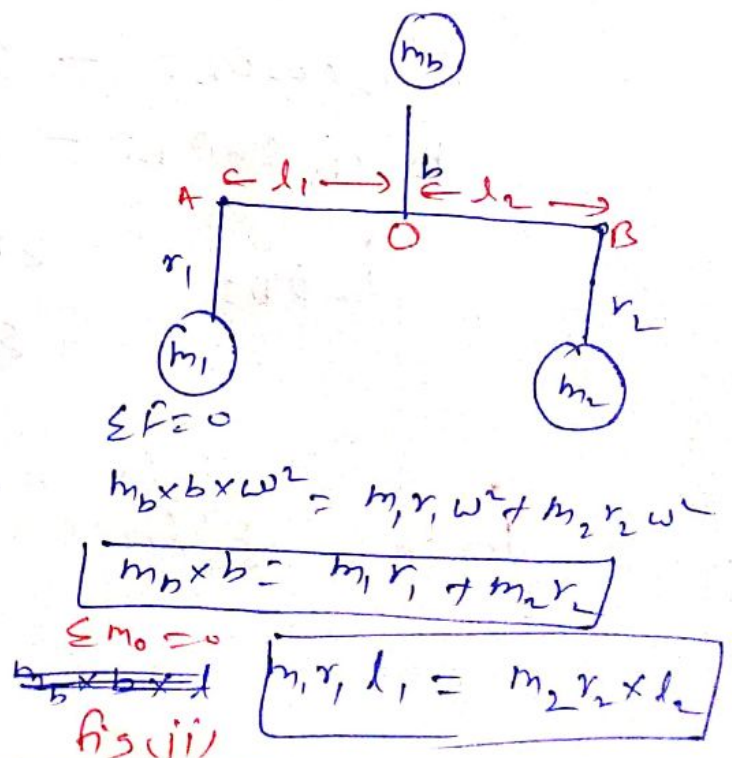 m_b
b
← l₁ → ← l₂ →
A O B
r₁ r₂
m₁ m₂
ΣF=0
m_b×b×ω² = m₁r₁ω² + m₂r₂ω²
m_b×b = m₁r₁ + m₂r₂
Σm₀ = 0
m_b×b×l
m₁r₁l₁ = m₂r₂×l₂
fig(ii)